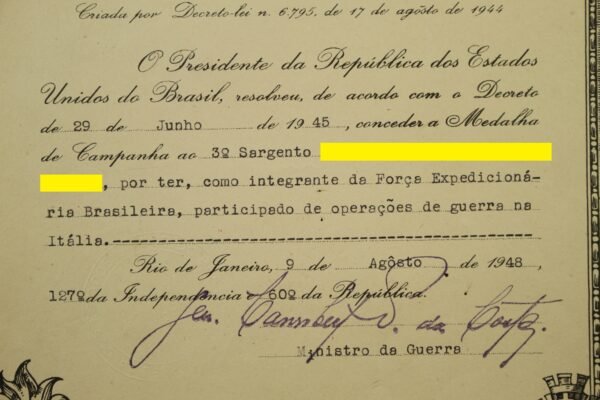 Criada por Decreto-lei n. 6.795, de 17 de agôsto de 1944
O Presidente da República dos Estados
Unidos do Brasil, resolveu, de acordo com o Decreto
de 29 de Junho de 1945, conceder a Medalha
de Campanha ao 3º Sargento
, por ter, como integrante da Força Expedicioná-
ria Brasileira, participado de operações de guerra na
Itália.-----------------------------------------
Rio de Janeiro, 9 de Agôsto de 1948,
127º da Independência e 60º da República.
Gen. Canrobert P. da Costa.
Ministro da Guerra